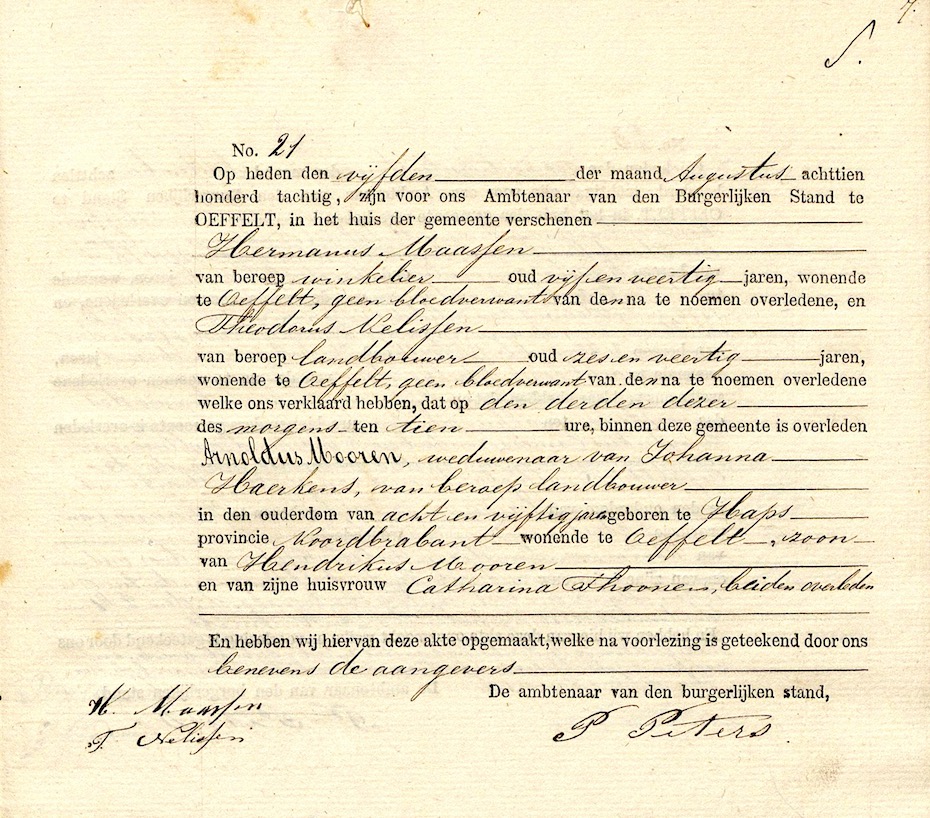 7.
S.
No. 21
Op heden den vijfden der maand Augustus achttien
honderd tachtig, zijn voor ons Ambtenaar van den Burgerlijken Stand te
OEFFELT, in het huis der gemeente verschenen
Hermanus Maassen
van beroep winkelier oud vijf en veertig jaren, wonende
te Oeffelt, geen bloedverwant van den na te noemen overledene, en
Theodorus Nelissen
van beroep landbouwer oud zes en veertig jaren,
wonende te Oeffelt, geen bloedverwant van den na te noemen overledene
welke ons verklaard hebben, dat op den derden dezer
des morgens ten tien ure, binnen deze gemeente is overleden
Arnoldus Mooren, weduwenaar van Johanna
Haerkens, van beroep landbouwer
in den ouderdom van acht en vijftig jaren geboren te Haps
provincie Noordbrabant wonende te Oeffelt, zoon
van Hendrikus Mooren
en van zijne huisvrouw Catharina Thoonen, beiden overleden
En hebben wij hiervan deze akte opgemaakt, welke na voorlezing is geteekend door ons
benevens de aangevers
De ambtenaar van den burgerlijken stand,
H. Maassen
T. Nelissen
P Peters